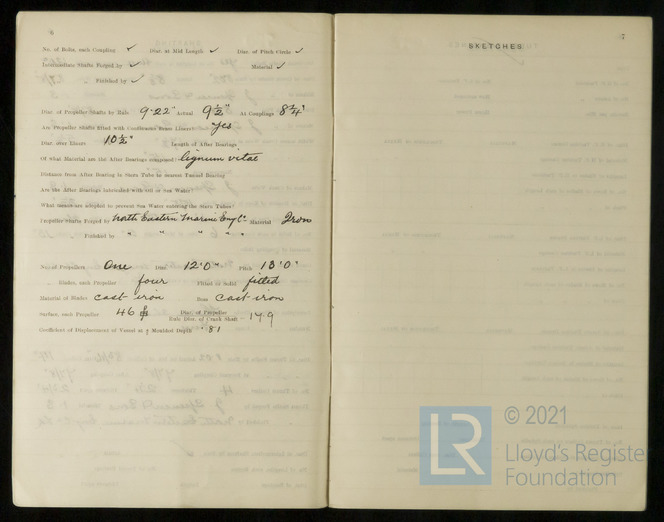 6
No. of Bolts, each Coupling ✓ Diar. at Mid Length ✓ Diar. of Pitch Circle ✓
Intermediate Shafts Forged by ✓ Material ✓
Finished by ✓
Diar. of Propeller Shafts by Rule 9.22" Actual 9½" At Couplings 8¾"
Are Propeller Shafts fitted with Continuous Brass Liners? Yes
Diar. over Liners 10½" Length of After Bearings
Of what Material are the After Bearings composed? Lignum vitae
Distance from After Bearing in Stern Tube to nearest Tunnel Bearing
Are the After Bearings lubricated with Oil or Sea Water
What means are adopted to prevent Sea Water entering the Stern Tubes?
Propeller Shafts Forged by North Eastern Marine Engg Co Material Iron
Finished by " " " " "
No. of Propellers One Diar. 12'0" Pitch 13'0"
Blades, each Propeller four Fitted or Solid fitted
Material of Blades cast iron Boss cast iron
Surface, each Propeller 46 Diar. of Propeller
Rule Diar. of Crank Shaft 14.9
Coefficient of Displacement of Vessel at Moulded Depth .81
7
SKETCHES.
LR © 2021
Lloyd's Register
Foundation